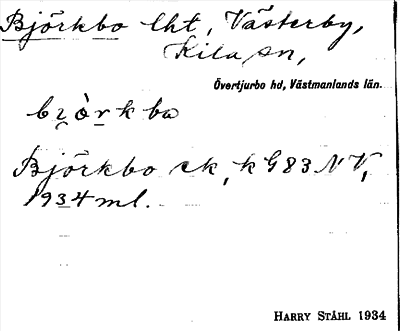 Björkbo lht, Västerby,
Kila sn,
Övertjurbo hd, Västmanlands län.
Björkbo ek, k G83 NV,
1934 ml.
HARRY STÅHL 1934